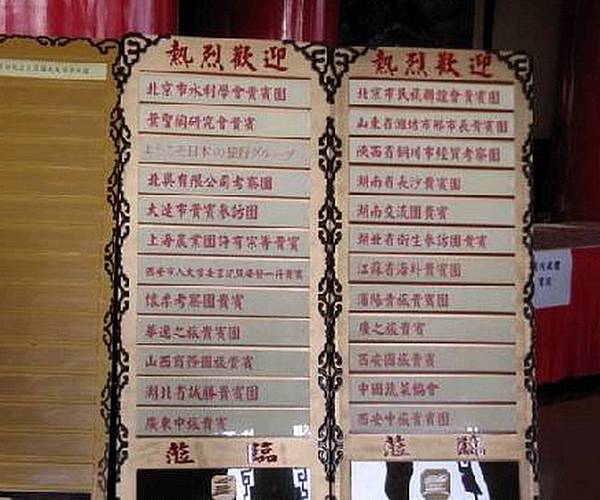 熱烈歡迎
北京市水利學會貴賓團
葉聖陶研究會貴賓
ようこそ日本の旅行グループ
北奥有限公司考察團
大連市貴賓參訪團
上海農業團許有宗等貴賓
西安市人大常委
懷柔考察團貴賓
華逸之旅貴賓團
山西商務團旅貴賓
湖北省試勝貴賓團
廣東中旅貴賓
蒞臨
熱烈歡迎
北京市民族聯誼會貴賓團
山東省濰坊市市長貴賓團
陝西省銅川市經貿考察團
湖南省長沙貴賓團
湖南交流團貴賓
湖北省衛生參訪團貴賓
江蘇省海外貴賓團
瀋陽青旅貴賓團
廣之旅貴賓
西安國旅貴賓
中國蔬菜協會
西安中旅貴賓團
蒞臨